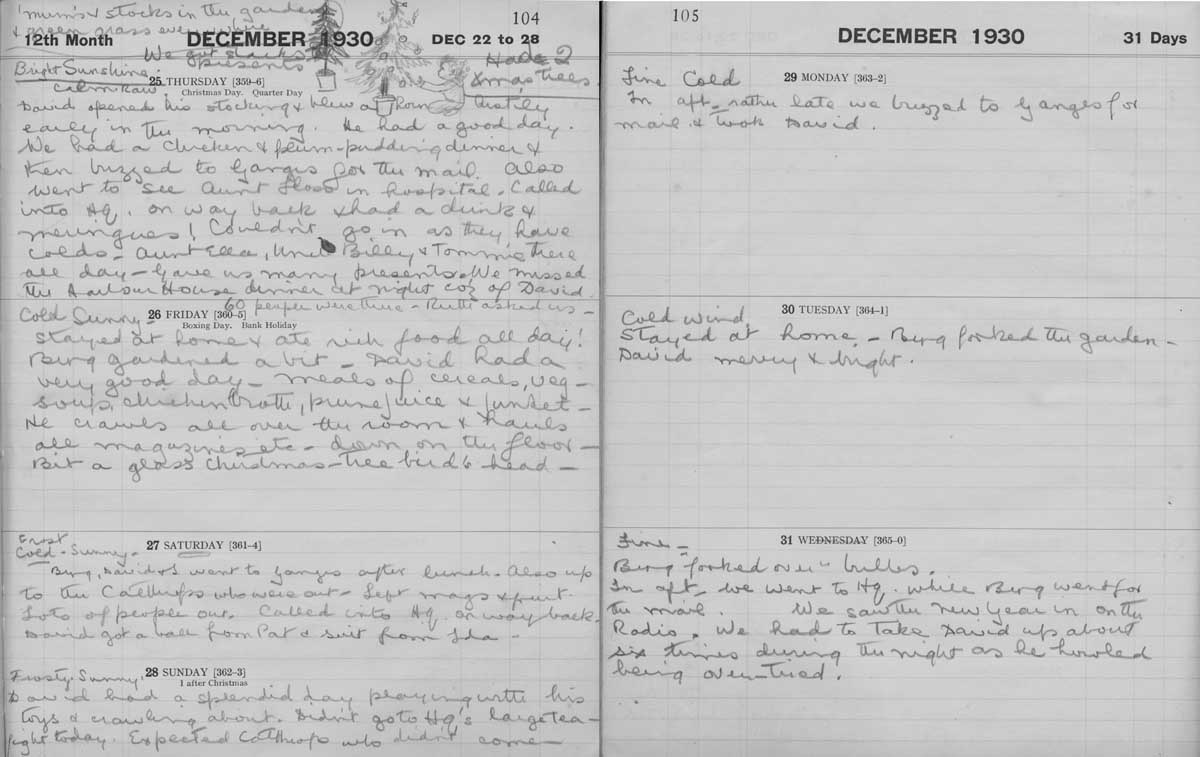 'mum's & stocks in the garden
& green grass everywhere
104
12th Month
DECEMBER 1930
DEC 22 to 28
We got stacks
presents
Had 2
Xmas trees
Bright Sunshine.
Calm
25 THURSDAY [359-6]
Christmas Day. Quarter Day
David opened his stocking & blew a horn lustily
early in the morning. He had a good day.
We had a chicken & plum-pudding dinner &
then buzzed to Ganges for the mail. Also
went to see Aunt Floss in hospital. Called
into Hq. on way back & had a drink &
meringues! Couldn't go in as they have
colds - Aunt Ella, Uncle Billy & Tommie there
all day - Gave us many presents. We missed
the Harbour House dinner at night coz of David.
60 people were there - Ruth asked us -
Cold Sunny -
26 FRIDAY [360-5]
Boxing Day. Bank Holiday
Stayed at home & ate rich food all day!
Berg gardened a bit - David had a
very good day - meals of cereals, veg -
soup, chicken broth, prune juice & junket -
He crawls all over the room & hauls
all magazines etc - down on the floor -
Bit a glass Christmas-tree bird's head -
Frost
Cold - Sunny -
27 SATURDAY [361-4]
Berg, David & I went to Ganges after lunch. Also up
to the Calthrops who were out - Left mags & fruit.
Lots of people out. Called into Hq. on way back.
David got a ball from Pat & suit from Ida -
Frosty. Sunny.
28 SUNDAY [362-3]
1 after Christmas
David had a splendid day playing with his
toys & crawling about. Didn't go to Hq's large tea-
fight today. Expected Calthrops who didn't come -
105
DECEMBER 1930
31 Days
Fine Cold
29 MONDAY [363-2]
In aft - rather late we buzzed to Ganges for
mail & took David.
30 TUESDAY [364-1]
Cold wind
Stayed at home. - Berg forked the garden -
David merry & bright.
31 WEDNESDAY [365-0]
Fine -
Berg "forked over" bulbs.
In aft - we went to Hq. while Berg went for
the mail. We saw the New Year in on the
Radio. We had to take David up about
six times during the night as he howled
being over-tired.